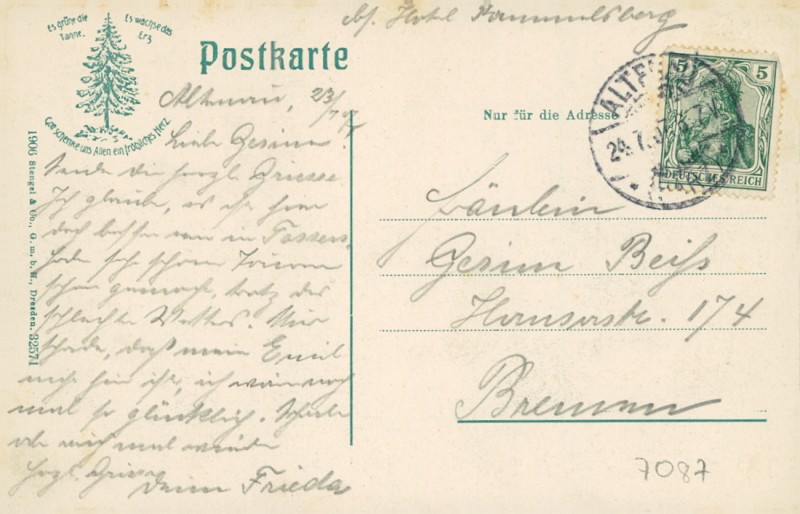 Es grüne die
Tanne.
Es wachse das
Erz
Gott schenke uns Allen ein fröhliches Herz.
Postkarte
Nur für die Adresse
abs. Hotel Rammelsberg
Altenau, 23/7 07
Liebe Gesine!
Sende dir herzl. Grüsse
Ich glaube, es ist hier
doch besser wie in
habe sehr schöne Touren
schon gemacht, trotz des
schlechten Wetters. Nur
schade, daß mein Emil
nicht hier ist, ich wäre noch
mal so glücklich. Schreibe
aber auch mal wieder
herzl. Grüsse
Deine Frieda
Fräulein
Gesine Beiß
Hansastr. 174
Bremen
24.7.07
5 5
DEUTSCHES REICH
1906 Stengel & Co., G. m. b. H., Dresden. 32571
7087